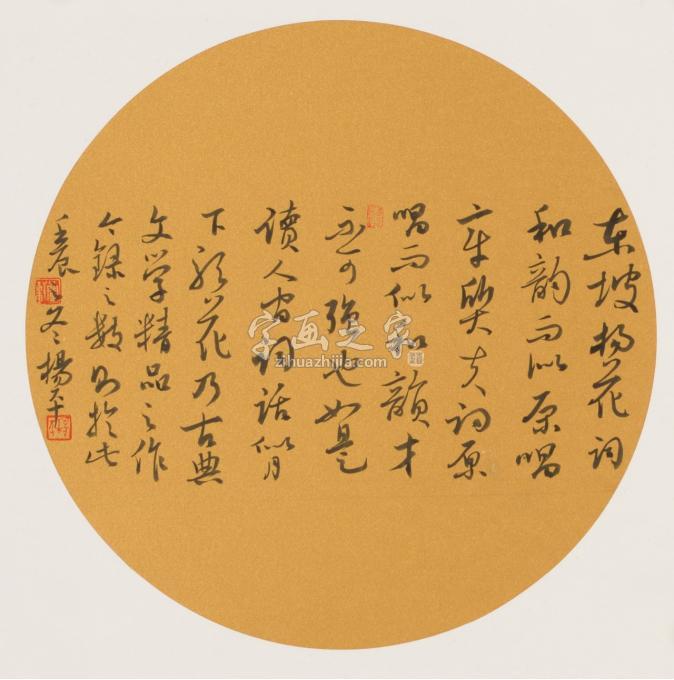 东坡杨花词
和韵而似原唱
章质夫词原
唱而似和韻才
不可强也如是
读人间词话似月
下观花乃古典
文学精品之作
今録之数则於此
壬辰之冬楊平
字画之家
zihuazhijia.com